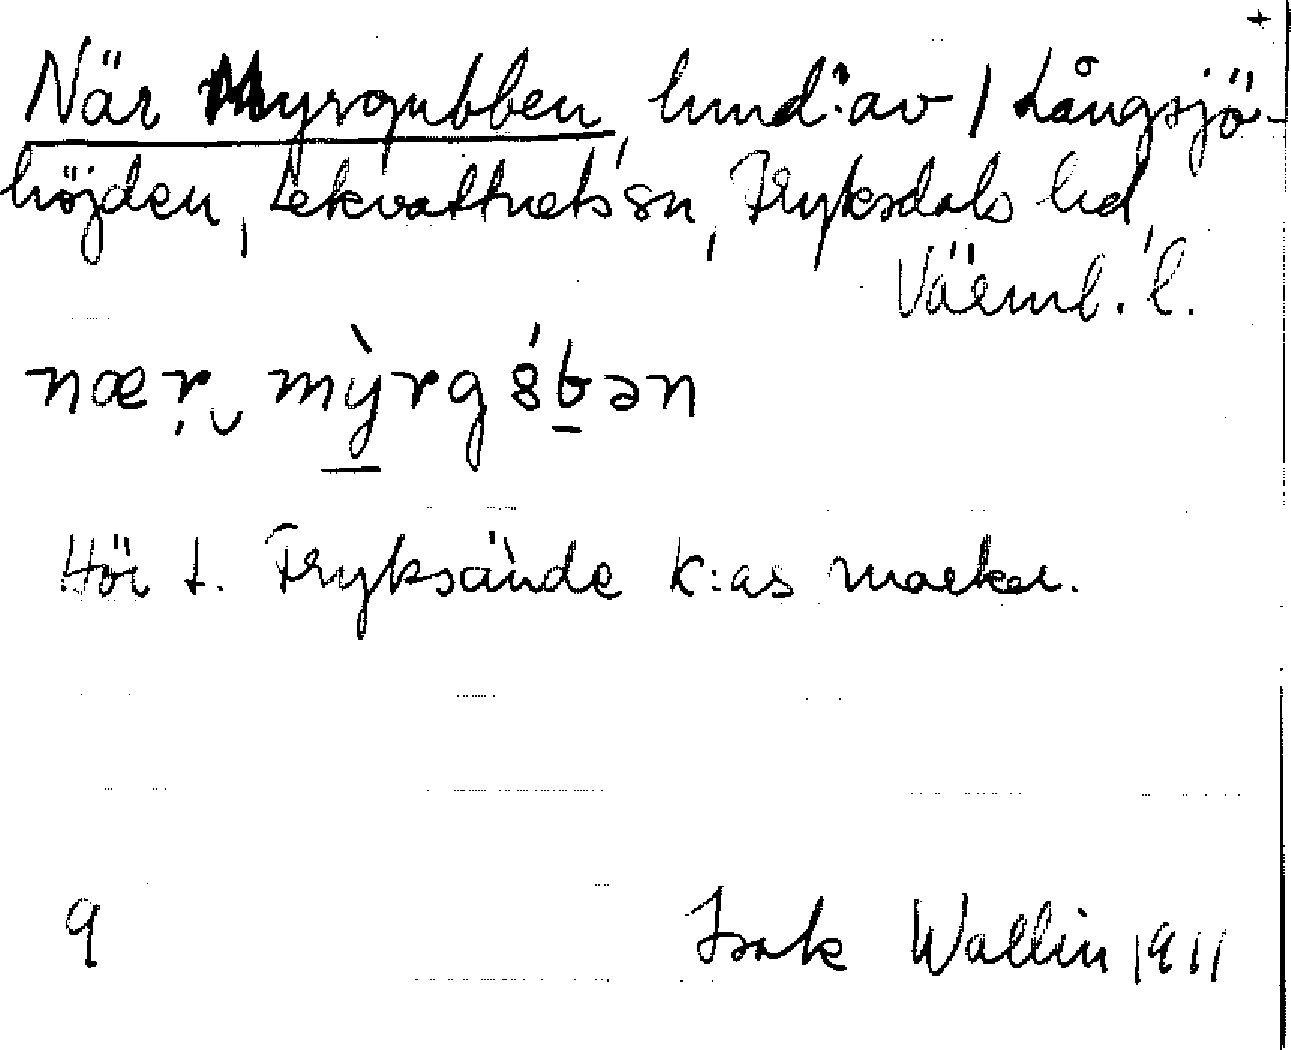 +
När Myrgubben, hmd: av / Långsjö-
höjden, Lekvattnets sn, Fryksdals hd,
Värml. l.
nær̤ mỳrgśbən
Hör t. Fryksände k:as marker.
9 Isak Wallin 1911